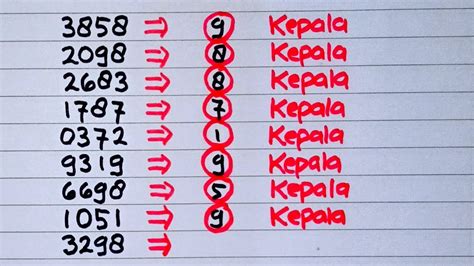 3858 ⇒ 9 Kepala
2098 ⇒ 8 Kepala
2683 ⇒ 8 Kepala
1787 ⇒ 7 Kepala
0372 ⇒ 1 Kepala
9319 ⇒ 9 Kepala
6698 ⇒ 5 Kepala
1051 ⇒ 9 Kepala
3298 ⇒